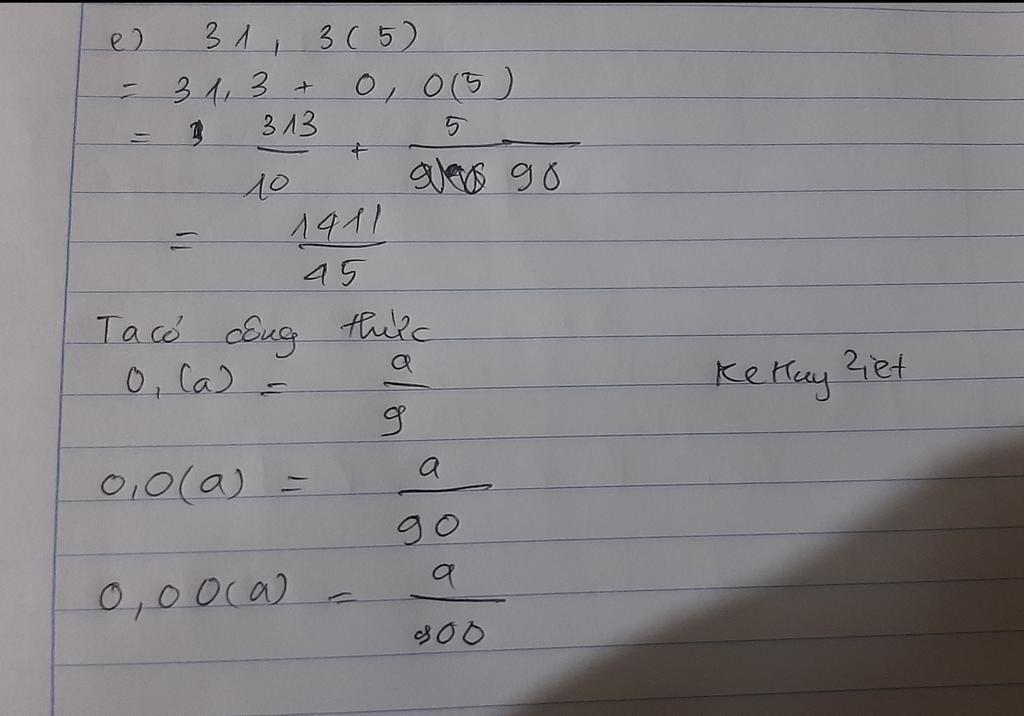 e) 31, 3(5)
= 31,3 + 0,0(5)
= 313/10 + 5/90
= 1411/45
Ta có công thức
0,(a) = a/9
0,0(a) = a/90
0,00(a) = a/900